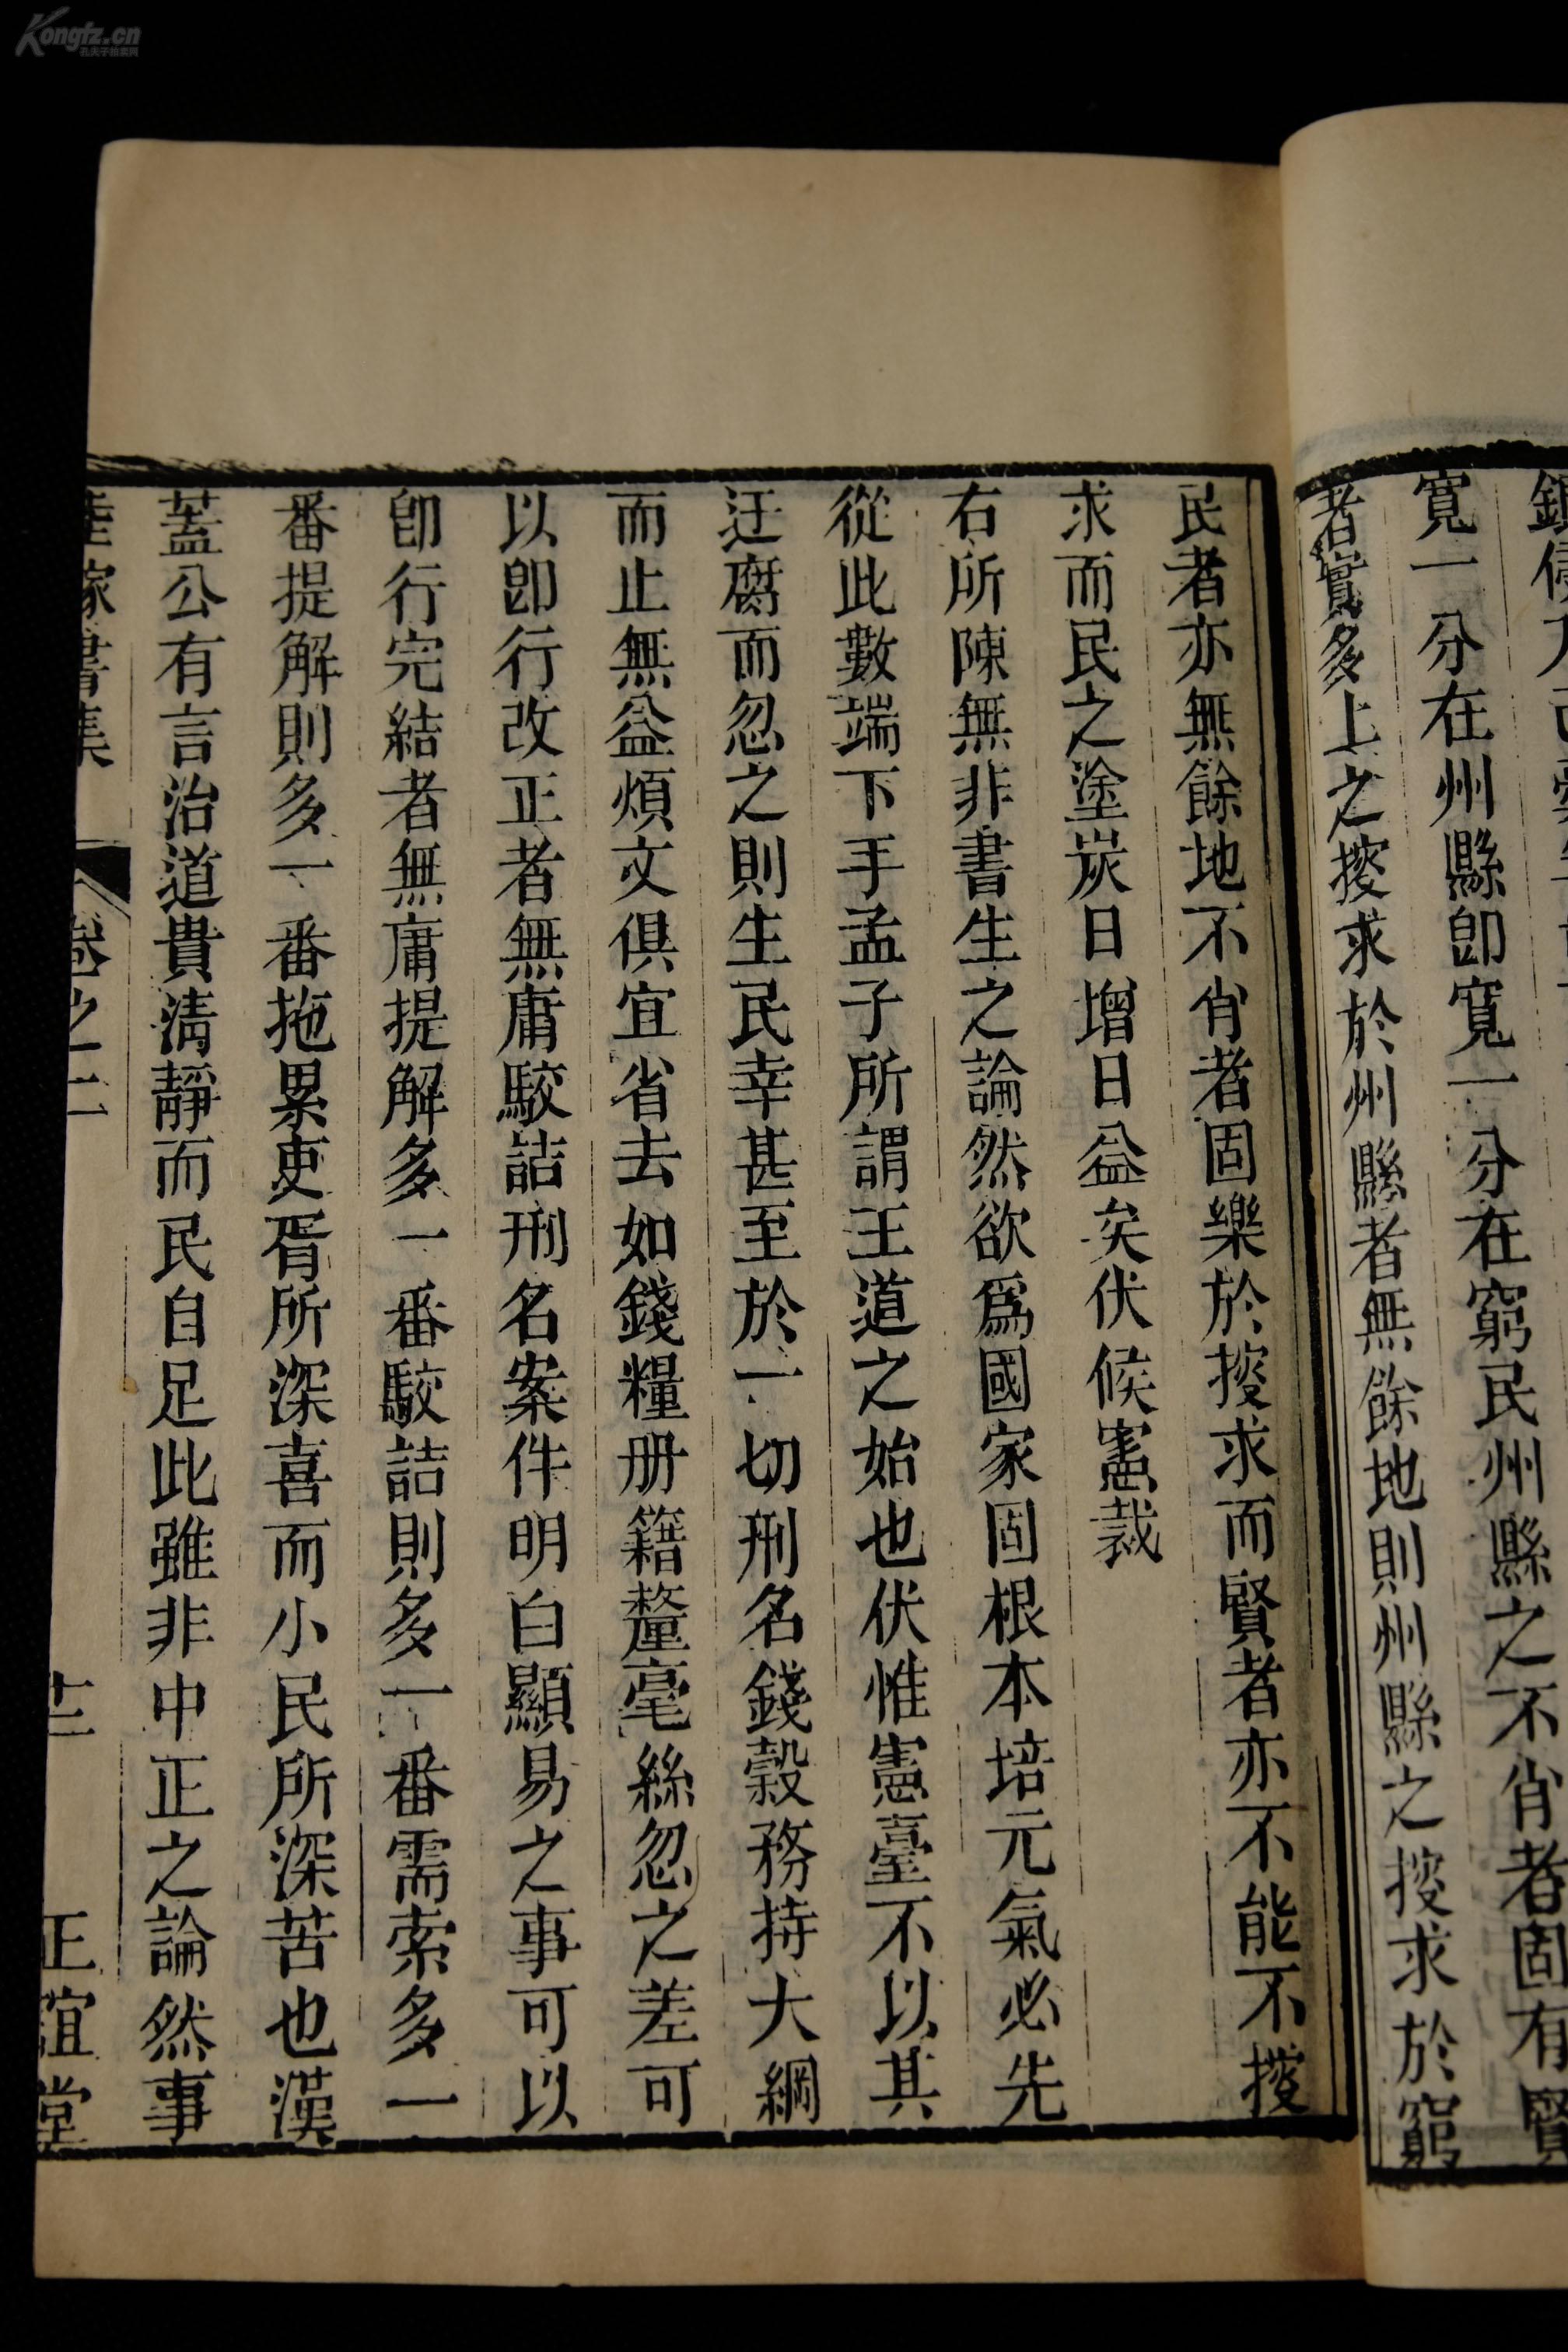 寬一分在州縣卽寬一分在窮民州縣之不肖者固有賢
者實多上之搜求於州縣者無餘地則州縣之搜求於窮
民者亦無餘地不肖者固樂於搜求而賢者亦不能不搜
求而民之塗炭日增日益矣伏候憲裁
右所陳無非書生之論然欲爲國家固根本培元氣必先
從此數端下手孟子所謂王道之始也伏惟憲臺不以其
迂腐而忽之則生民幸甚至於一切刑名錢穀務持大綱
而止無益煩文俱宜省去如錢糧册籍釐毫絲忽之差可
以卽行改正者無庸駮詰刑名案件明白顯易之事可以
卽行完結者無庸提解多一番駮詰則多一番需索多一
番提解則多一番拖累吏胥所深喜而小民所深苦也漢
蓋公有言治道貴淸靜而民自足此雖非中正之論然事
稼書集 卷之二 十二 正誼堂
Kongfz.cn
孔夫子旧书网